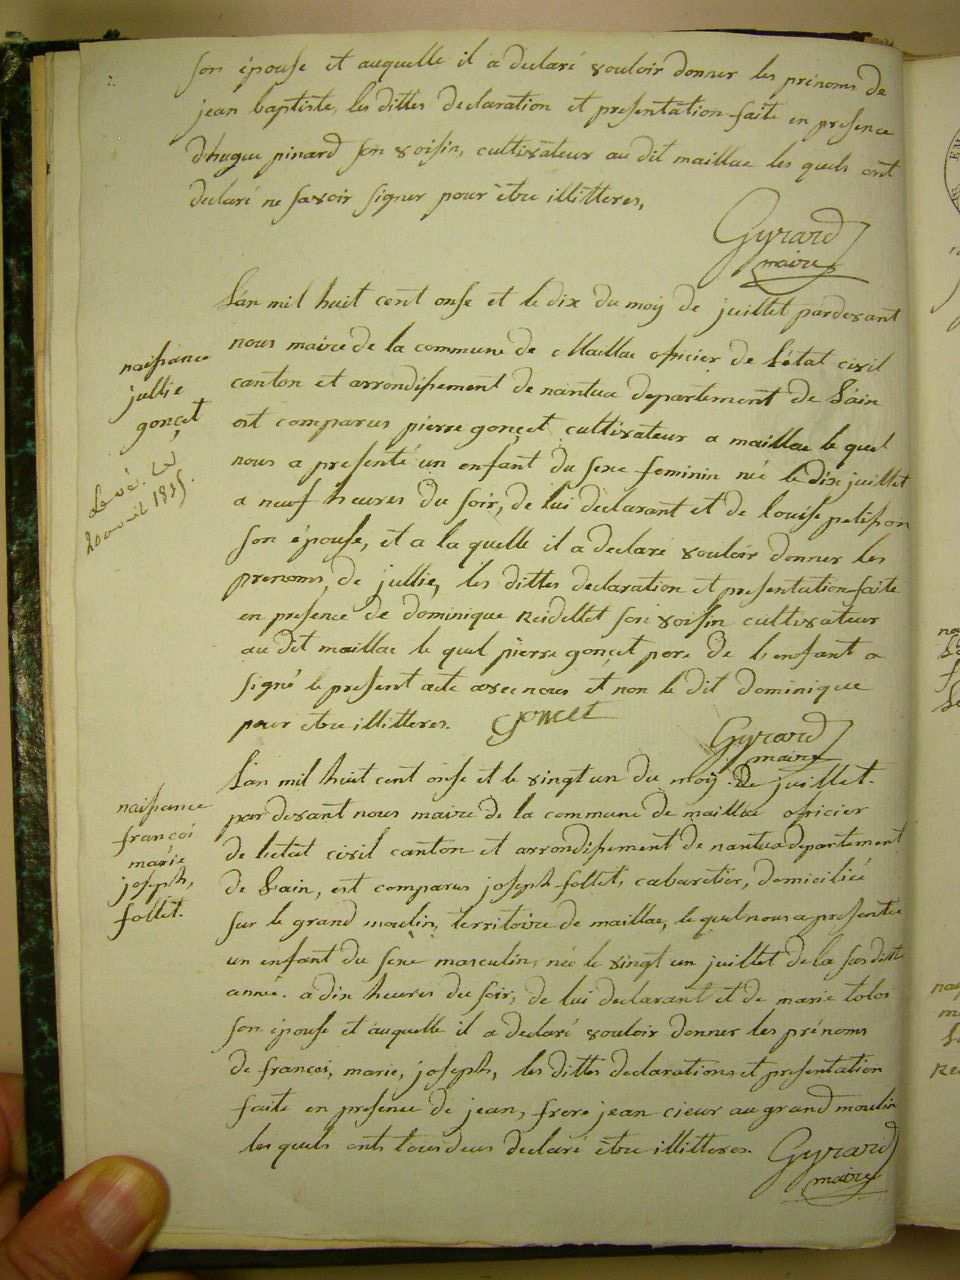 son épouse et auquelle il a declaré vouloir donner les prénoms de
jean baptiste, les dittes declaration et presentation faite en presence
d'hugue pinard son voisin, cultivateur au dit maillac les quels ont
declaré ne savoir signer pour être illitteres,
Gyrard
maire
L'an mil huit cent onse et le dix du moij de juillet pardevant
nous maire de la commune de Maillac officier de l'état civil
canton et arrondissement de nantua departement de L'ain
est comparus pierre gonçet cultivateur a maillac le quel
nous a presenté un enfant du sexe feminin née le dix juillet
a neuf heures du soir, de lui declarant et de louise petisson
son épouse, et a la quelle il a declaré vouloir donner les
prenoms, de jullie, les dittes declaration et presentation faite
en presence de dominique Reidellet son voisin cultivateur
au dit maillac le quel pierre gonçet pere de l'enfant a
signé le present acte avec nous et non le dit dominique
pour être illitteres. Goncet
Gyrard
maire
naissance
jullie
gonçet
20 avril
L'an mil huit cent onse et le vingt un du moij de juillet.
par devant nous maire de la commune de maillac officier
de l'etat civil canton et arrondissement de nantua departement
de L'ain, est comparus joseph follet, cabaretier, domicilié
sur le grand moulin, territoire de maillac, le quel nous a presentée
un enfant du sexe masculin, née le vingt un juillet de la susditte
année. a dix heures du soir, de lui declarant et de marie
son épouse et auquelle il a declaré vouloir donner les prénoms
de françoi, marie, joseph, les dittes declarations et presentation
faite en presence de jean, frere jean cieur au grand moulin
les quels onts tous deus declaré être illitteres.
Gyrard
maire
naissance
françoi
marie
joseph,
follet.